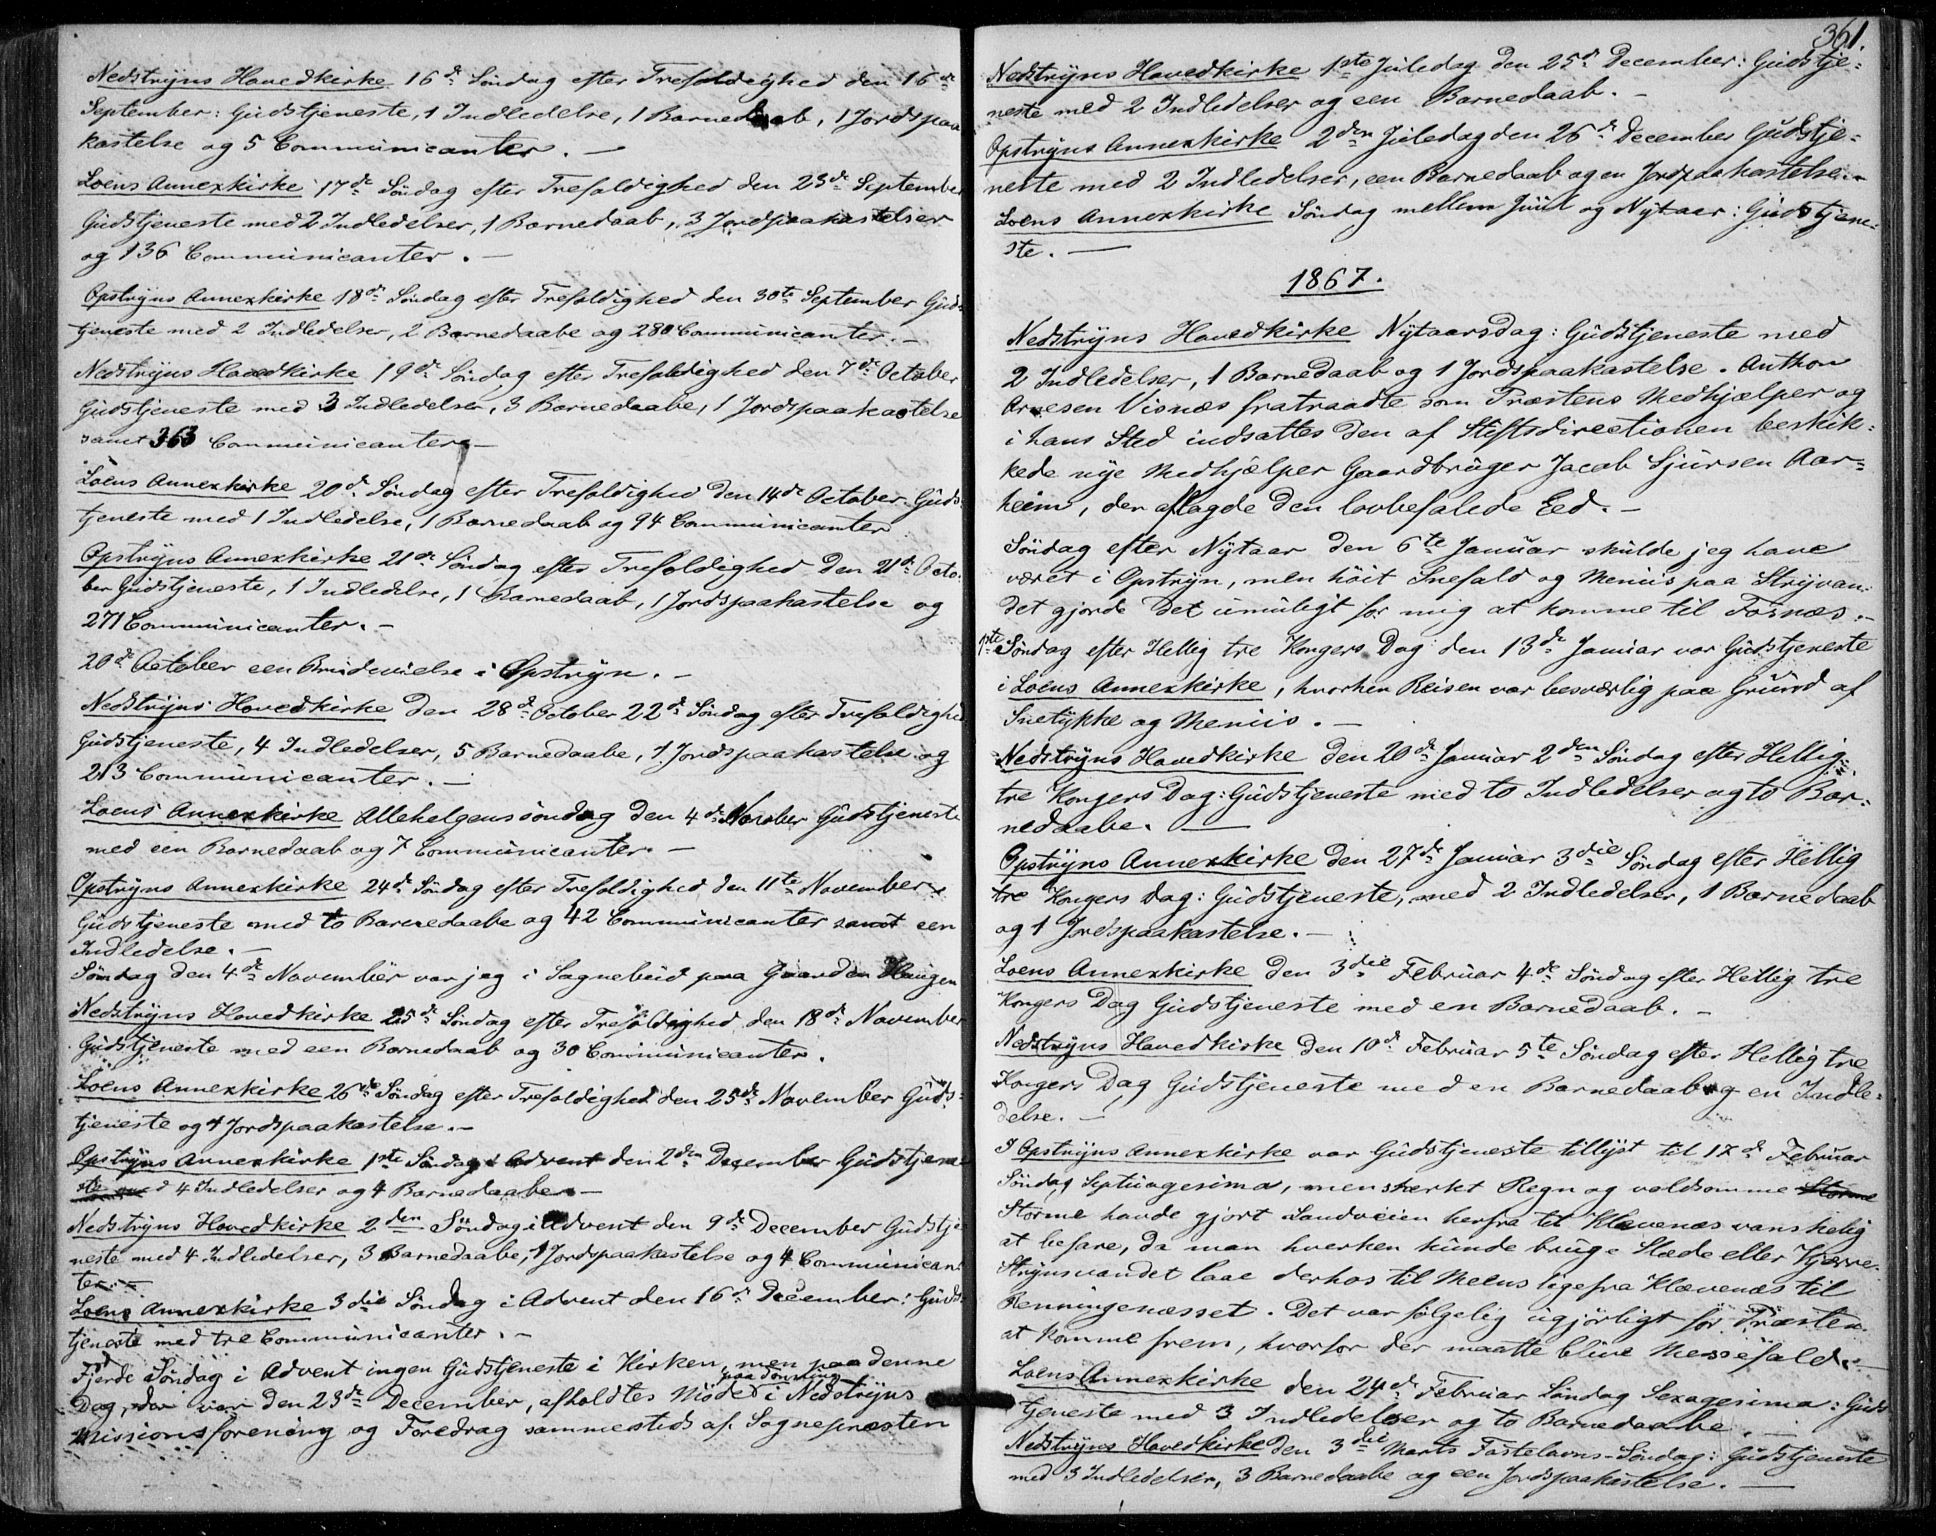 Nedstryns Hovedkirke 16de Søndag efter Trefoldighed den 16de
September: Gudstjeneste, 1 Indledelse, 1 Barnedaab, 1 Jordspaa
kastelse og 5 Communicanter. —
Loens Annexkirke 17de Søndag efter Trefoldighed den 23de September
Gudstjeneste med 2 Indledelser, 1 Barnedaab, 3 Jordspaakastelser
og 136 Communicanter. —
Opstryns Annexkirke 18de Søndag efter Trefoldighed den 30te September Guds-
tjeneste med 2 Indledelser, 2 Barnedaabe og 280 Communicanter. —
Nedstryns Hovedkirke 19de Søndag efter Trefoldighed den 7de October
Gudstjeneste med 3 Indledelser, 3 Barnedaabe, 1 Jordspaakastelse
samt 363 Communicanter —
Loens Annexkirke 20de Søndag efter Trefoldighed den 14de October Guds-
tjeneste med 1 Indledelse, 1 Barnedaab og 94 Communicanter
Opstryns Annexkirke 21de Søndag efter Trefoldighed den 21de Octo-
ber Gudstjeneste, 1 Indledelse, 1 Barnedaab, 1 Jordspaakastelse og
271 Communicanter. —
20de October een Brudevielse i Opstryn. —
Nedstryns Hovedkirke den 28de October 22de Søndag efter Trefoldighed
Gudstjeneste, 4 Indledelser, 5 Barnedaabe, 1 Jordspaakastelse og
213 Communicanter. —
Loens Annexkirke Allehelgenssøndag den 4de November Gudstjeneste
med een Barnedaab og 7 Communicanter. —
Opstryns Annexkirke 24de Søndag efter Trefoldighed den 11te November
Gudstjeneste med to Barnedaabe og 42 Communicanter samt een
Indledelse. —
Søndag den 4de November var jeg i Sognebud paa Gaarden Haugen
Nedstryns Hovedkirke 25de Søndag efter Trefoldighed den 18de November
Gudstjeneste med een Barnedaab og 30 Communicanter.
Loens Annexkirke 26de Søndag efter Trefoldighed den 25de November Guds-
tjeneste og 4 Jordspaakastelse. —
Opstryns Annexkirke 1ste Søndag i Advent den 2den December Gudstjene
ste med 4 Indledelser og 4 Barnedaabe. —
Nedstryns Hovedkirke 2den Søndag i Advent den 9de December Gudstje-
neste med 4 Indledelser, 3 Barnedaabe, 1 Jordspaakastelse og 4 Communican
ter. —
Loens Annexkirke 3die Søndag i Advent den 16de December: Guds-
tjeneste med tre Communicanter. —
Fjerde Søndag i Advent ingen Gudstjeneste i Kirken, men paa denne
Dag, der var den 23de December, afholdtes Møde paa Tonning i Nedstryns
Missionsforening og Foredrag sammesteds af Sognepræsten
361.
Nedstryns Hovedkirke 1ste Juledag den 25de December: Gudstje-
neste med 2 Indledelser og een Barnedaab. —
Opstryns Annexkirke 2den Juledag den 26de December Gudstje-
neste med 2 Indledelser, een Barnedaab og en Jordpaakastelse. —
Loens Annexkirke Søndag mellem Juul og Nytaar: Gudstjene-
ste. —
1867.
Nedstryns Hovedkirke Nytaarsdag: Gudstjeneste med
2 Indledelser, 1 Barnedaab og 1 Jordspaakastelse. Anthon
Arnesen Visnæs fratraadte som Præstens Medhjælper og
i hans Sted indsattes den af Stiftsdirectionen beskik-
kede nye Medhjælper Gaardbruger Jacob Sjursen Aar-
heim, der aflagde den lovbefalede Eed. —
Søndag efter Nytaar den 6te Januar skulde jeg have
været i Opstryn, men høit Snefald og Meniis paa Stryvan-
det gjorde det umuligt for mig at komme til Fosnæs. —
1ste Søndag efter Hellig tre Kongers Dag den 13de Januar var Gudstjeneste
i Loens Annexkirke, hvorhen Reisen var besværlig paa Grund af
Snetykke og Meniis. —
Nedstryns Hovedkirke den 20de Januar 2den Søndag efter Hellig-
tre Kongers Dag: Gudstjeneste med to Indledelser og to Bar-
nedaabe. —
Opstryns Annexkirke den 27de Januar 3die Søndag efter Hellig
tre Kongers Dag: Gudstjeneste, med 2 Indledelser, 1 Barnedaab
og 1 Jordspaakastelse. —
Loens Annexkirke den 3die Februar 4de Søndag efter Hellig tre
Kongers Dag Gudstjeneste med en Barnedaab. —
Nedstryns Hovedkirke den 10de Februar 5te Søndag efter Hellig tre
Kongers Dag Gudstjeneste med en Barnedaab og en Indle-
delse. —
I Opstryns Annexkirke var Gudstjeneste tillyst til 17de Februar
Søndag Septuagesima, men stærkt Regn og voldsomme Storme
Storme havde gjort Landveien herfra til Klævenæs vanskelig
at befare, da man hverken kunde bruge Slæde eller Kjærre.
Strynsvandet laae derhos til Meens ligefra Klævenæs til
Renningenæsset. Det var følgelig ugjørligt for Præsten
at komme frem, hvorfor der maatte blive Messefald. —
Loens Annexkirke den 24de Februar Søndag Sexagesima: Guds
tjeneste med 3 Indledelser og to Barnedaabe. —
Nedstryns Hovedkirke den 3die Marts Fastelavns-Søndag: Gudstjeneste
med 3 Indledelser, 3 Barnedaabe og een Jordspaakastelse. —